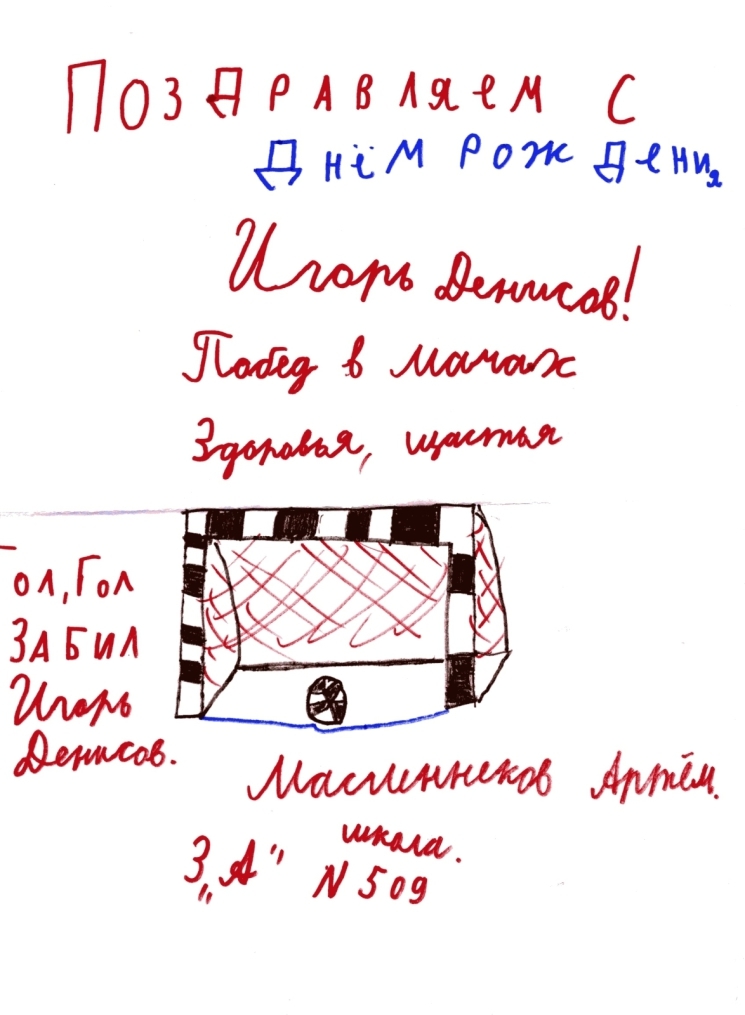 Поздравляем с
Днём рождения
Игорь Денисов!
Побед в мачах
Здоровья, щастья
Гол, Гол
Забил
Игорь
Денисов.
Масленнеков Артём.
3 „А" школа.
N 509